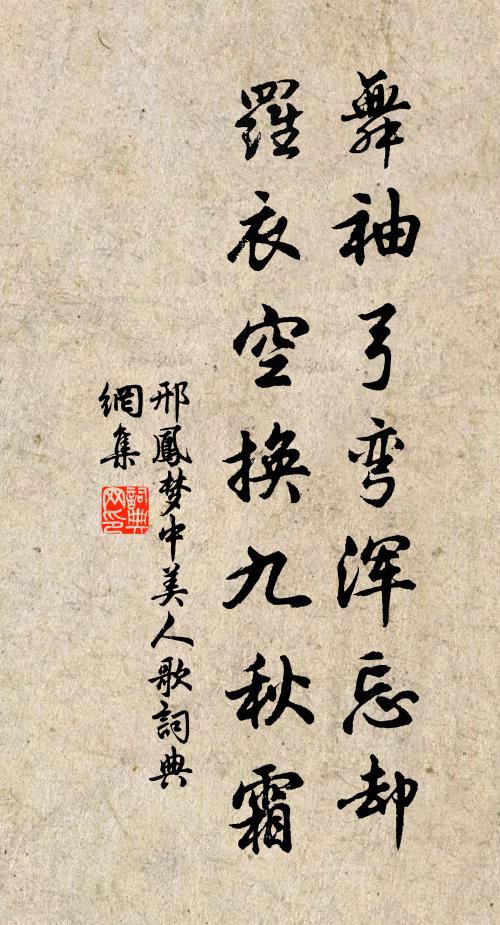 舞袖弓弯浑忘却
羅衣空换九秋霜
邢鳳梦中美人歌詞典
網集
詞典
网印